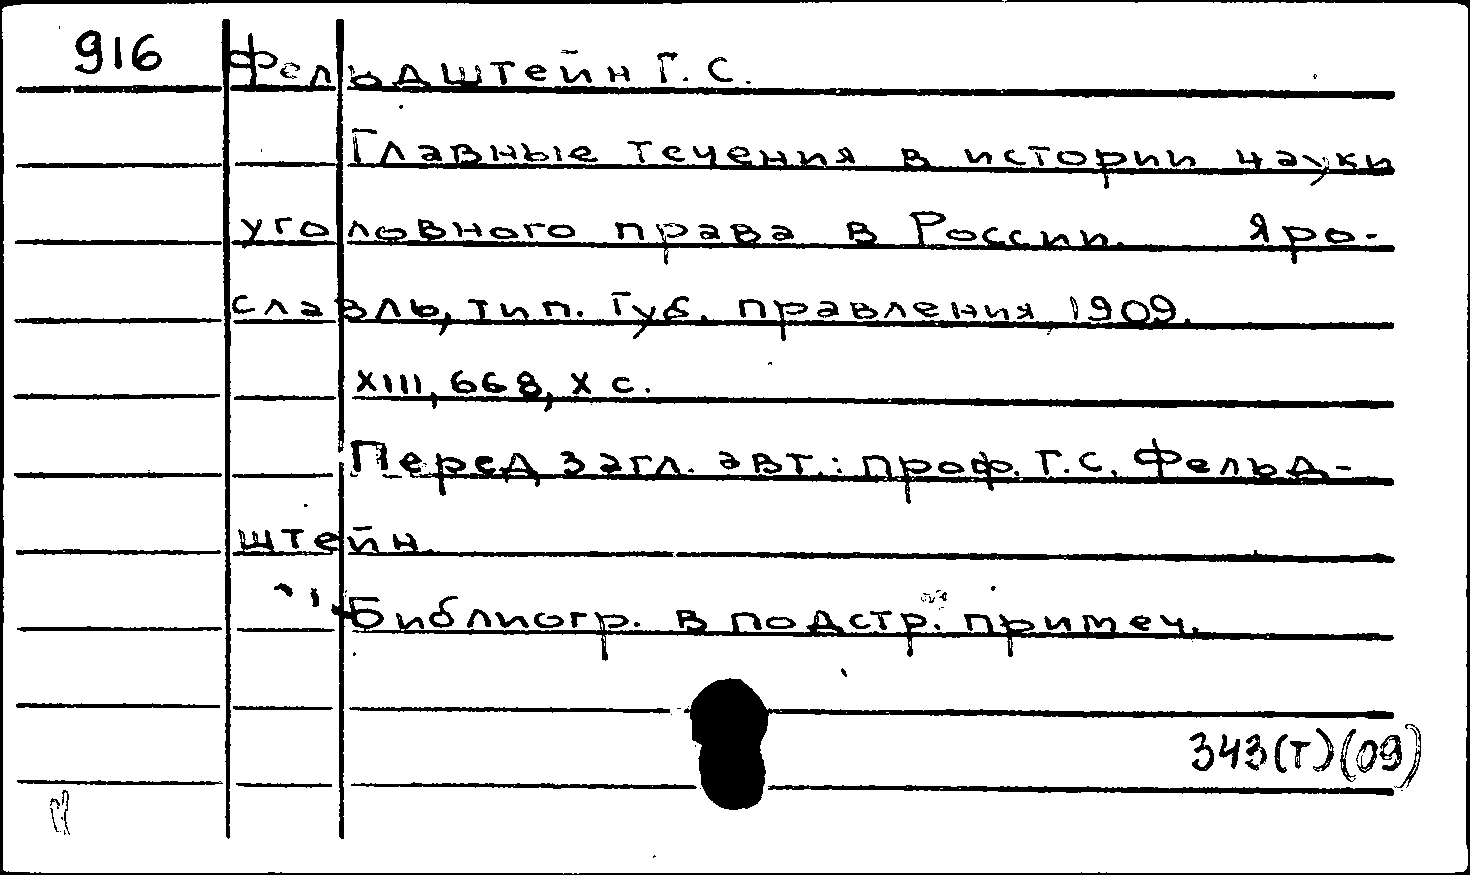 916
Фельдштейн Г. С.
Главные течения в истории науки
уголовного права в России. Яро-
славль, тип. Губ. правления, 1909.
XIII, 668, X с.
Перед загл. авт.: проф. Г. С. Фельд-
штейн.
Библиогр. в подстр. примеч.
343(Т)(09)